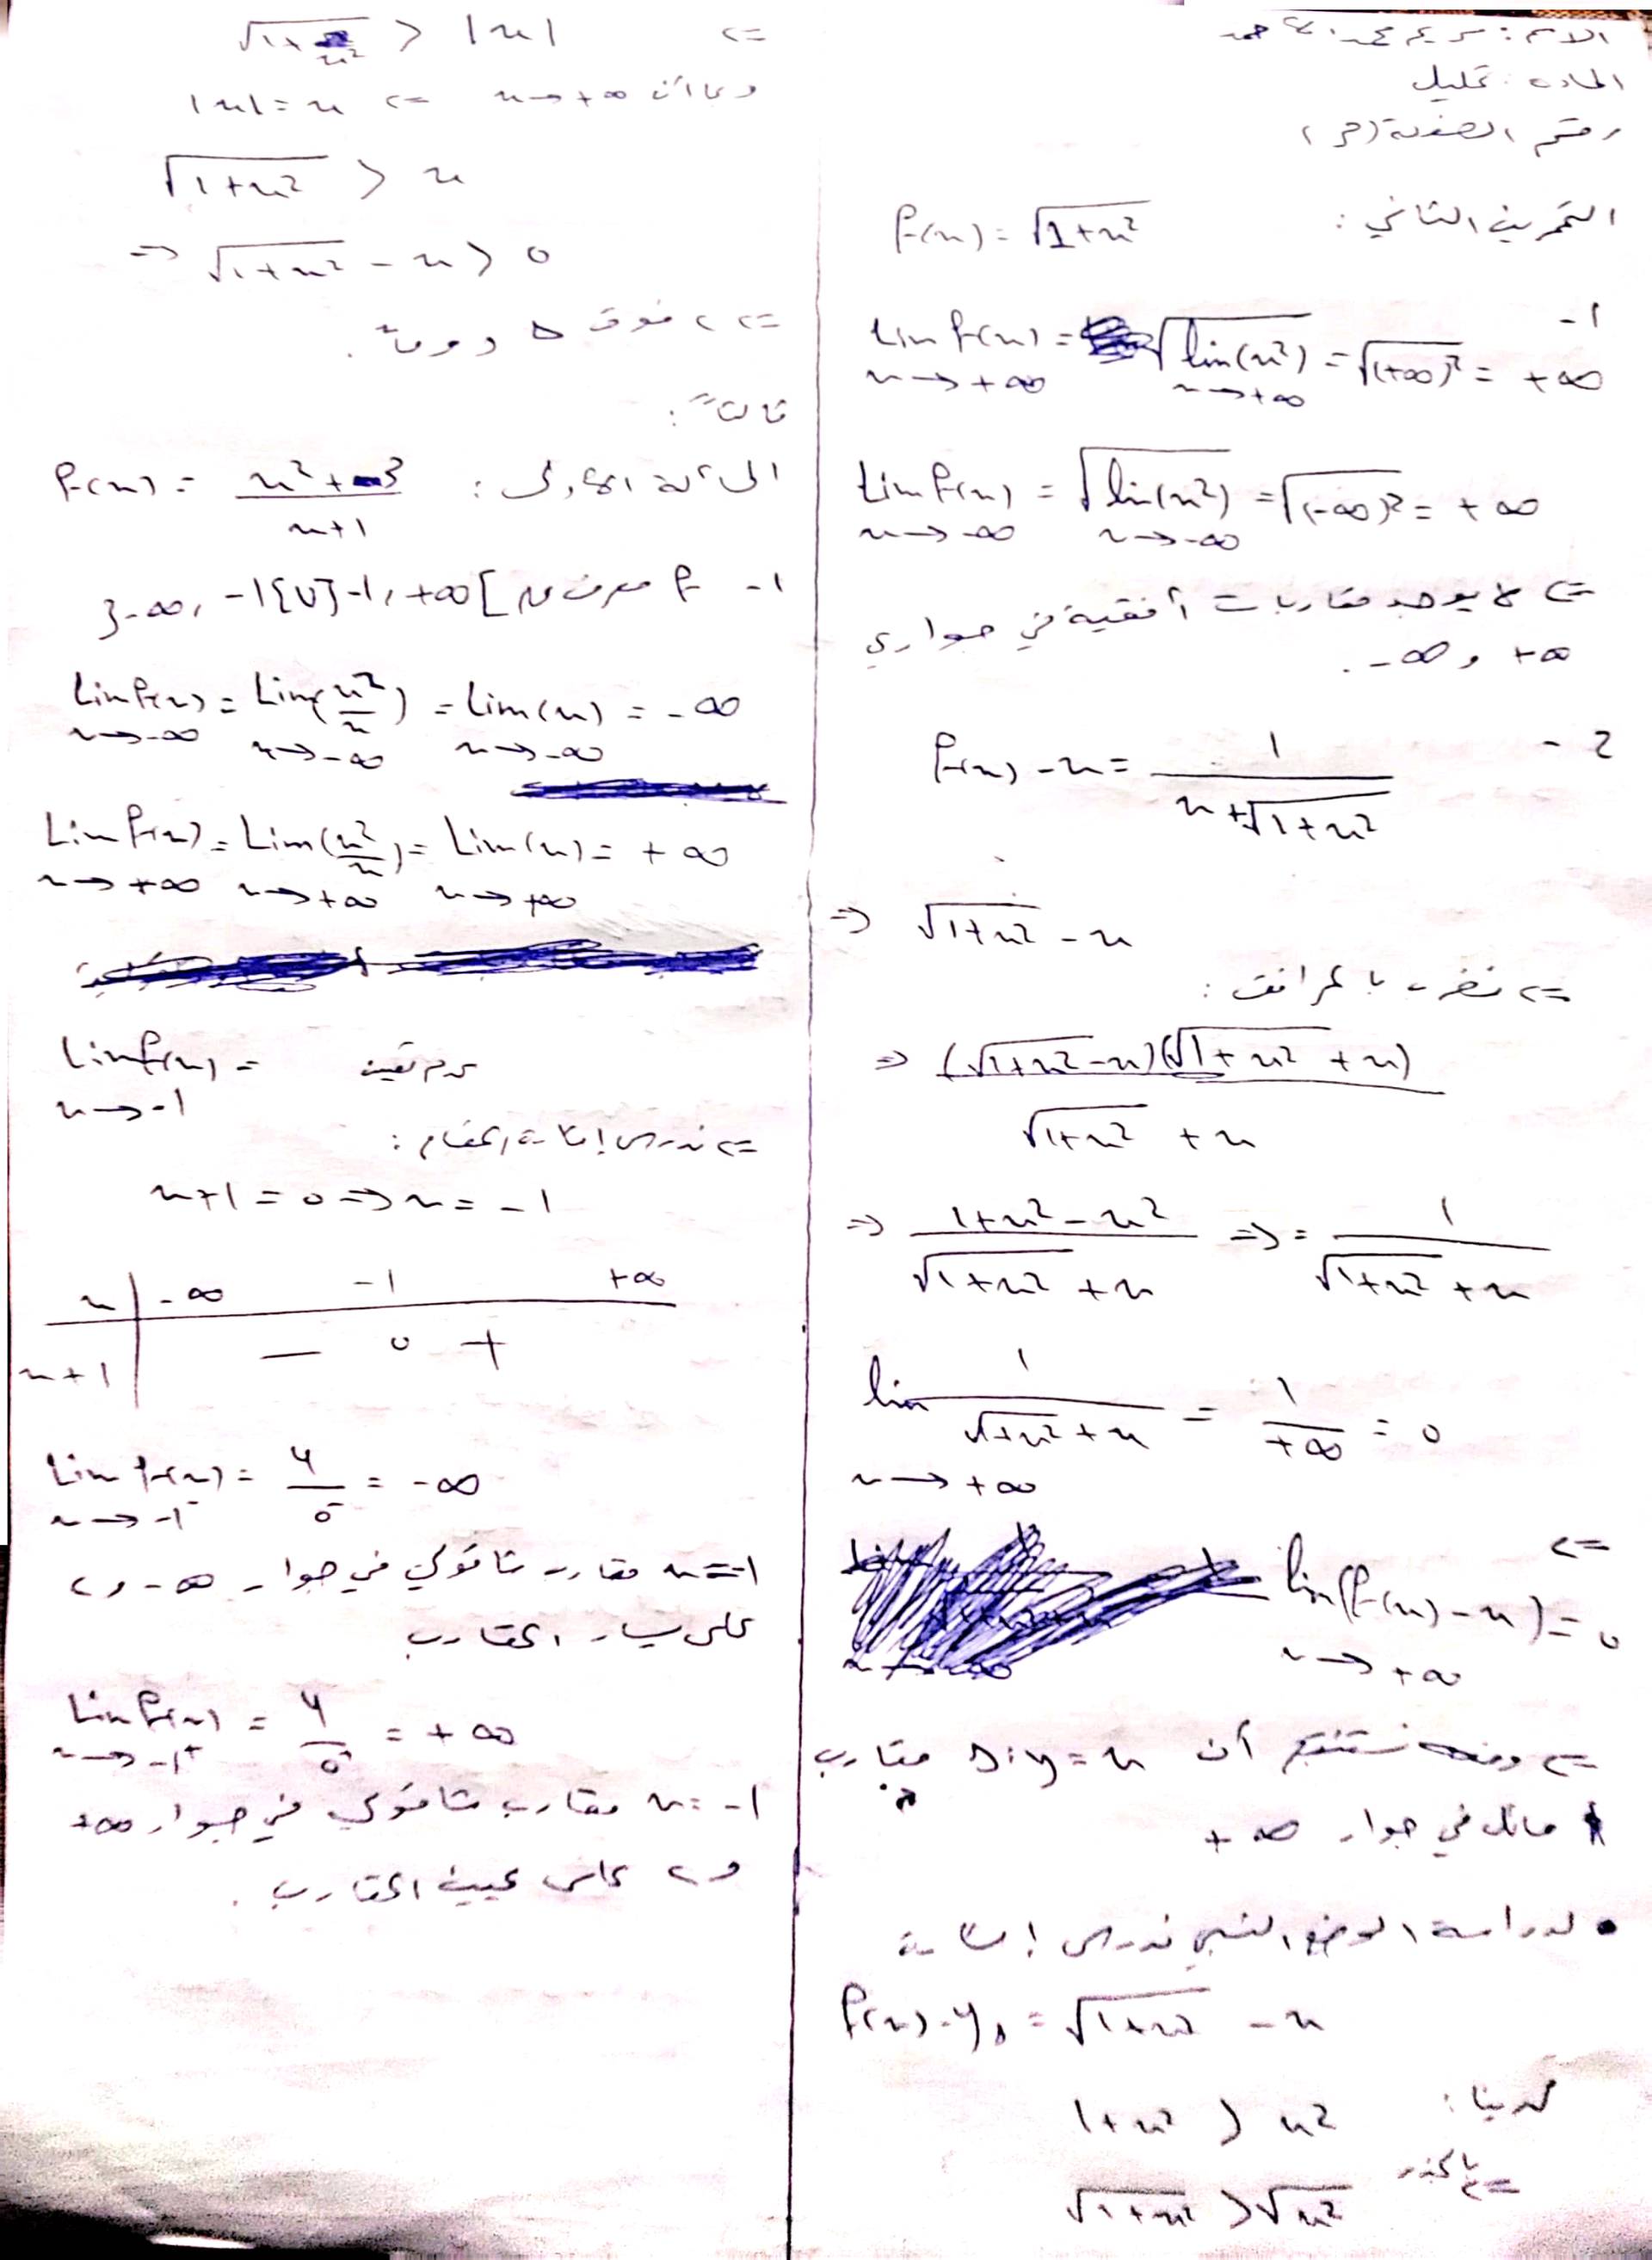 الاسم: مريم محمد الأحمد
المادة: تحليل
رقم الصفحة (3)
التمرين الثاني: f(x) = √(1+x²)
1- lim f(x) = √(lim(x²)) = √(+∞)² = +∞
x→+∞ x→+∞
lim f(x) = √(lim(x²)) = √(-∞)² = +∞
x→-∞ x→-∞
=> لا يوجد مقاربات أفقية في جواري
+∞ و -∞ .
2- f(x) - x = 1/(x+√(1+x²))
=> √(1+x²) - x
=> نضرب بالمرافق:
=> (√(1+x²) - x)(√(1+x²) + x) / (√(1+x²) + x)
=> (1+x² - x²)/(√(1+x²) + x) => = 1/(√(1+x²) + x)
lim 1/(√(1+x²) + x) = 1/+∞ = 0
x→+∞
=> lim(f(x) - x) = 0
x→+∞
=> ومنه نستنتج أن Δ: y = x مقارب
مائل في جوار +∞
• لدراسة الوضع النسبي ندرس إشارة
f(x) - yΔ = √(1+x²) - x
لدينا: 1+x² > x²
=> بالجذر √(1+x²) > √x²
=> √(1+x²) > |x|
وبما أن x→+∞ => |x| = x
√(1+x²) > x
=> √(1+x²) - x > 0
=> c فوق Δ دوماً .
ثالثاً:
المسألة الأولى: f(x) = (x²+3)/(x+1)
1- f معرف على ]-∞, -1[∪]-1, +∞[
lim f(x) = lim(x²/x) = lim(x) = -∞
x→-∞ x→-∞ x→-∞
lim f(x) = lim(x²/x) = lim(x) = +∞
x→+∞ x→+∞ x→+∞
lim f(x) = عدم تعيين
x→-1
=> ندرس إشارة المقام:
x+1 = 0 => x = -1
x | -∞ -1 +∞
x+1 | − 0 +
lim f(x) = 4/0⁻ = -∞
x→-1⁻
x = -1 مقارب شاقولي في جوار -∞ و c
على يسار المقارب
lim f(x) = 4/0⁺ = +∞
x→-1⁺
x = -1 مقارب شاقولي في جوار +∞
و c على يمين المقارب .